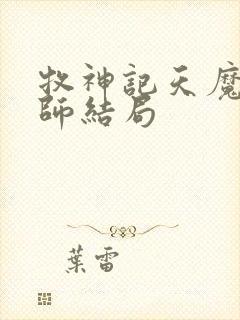 牧神記天魔
師結局
葉雷